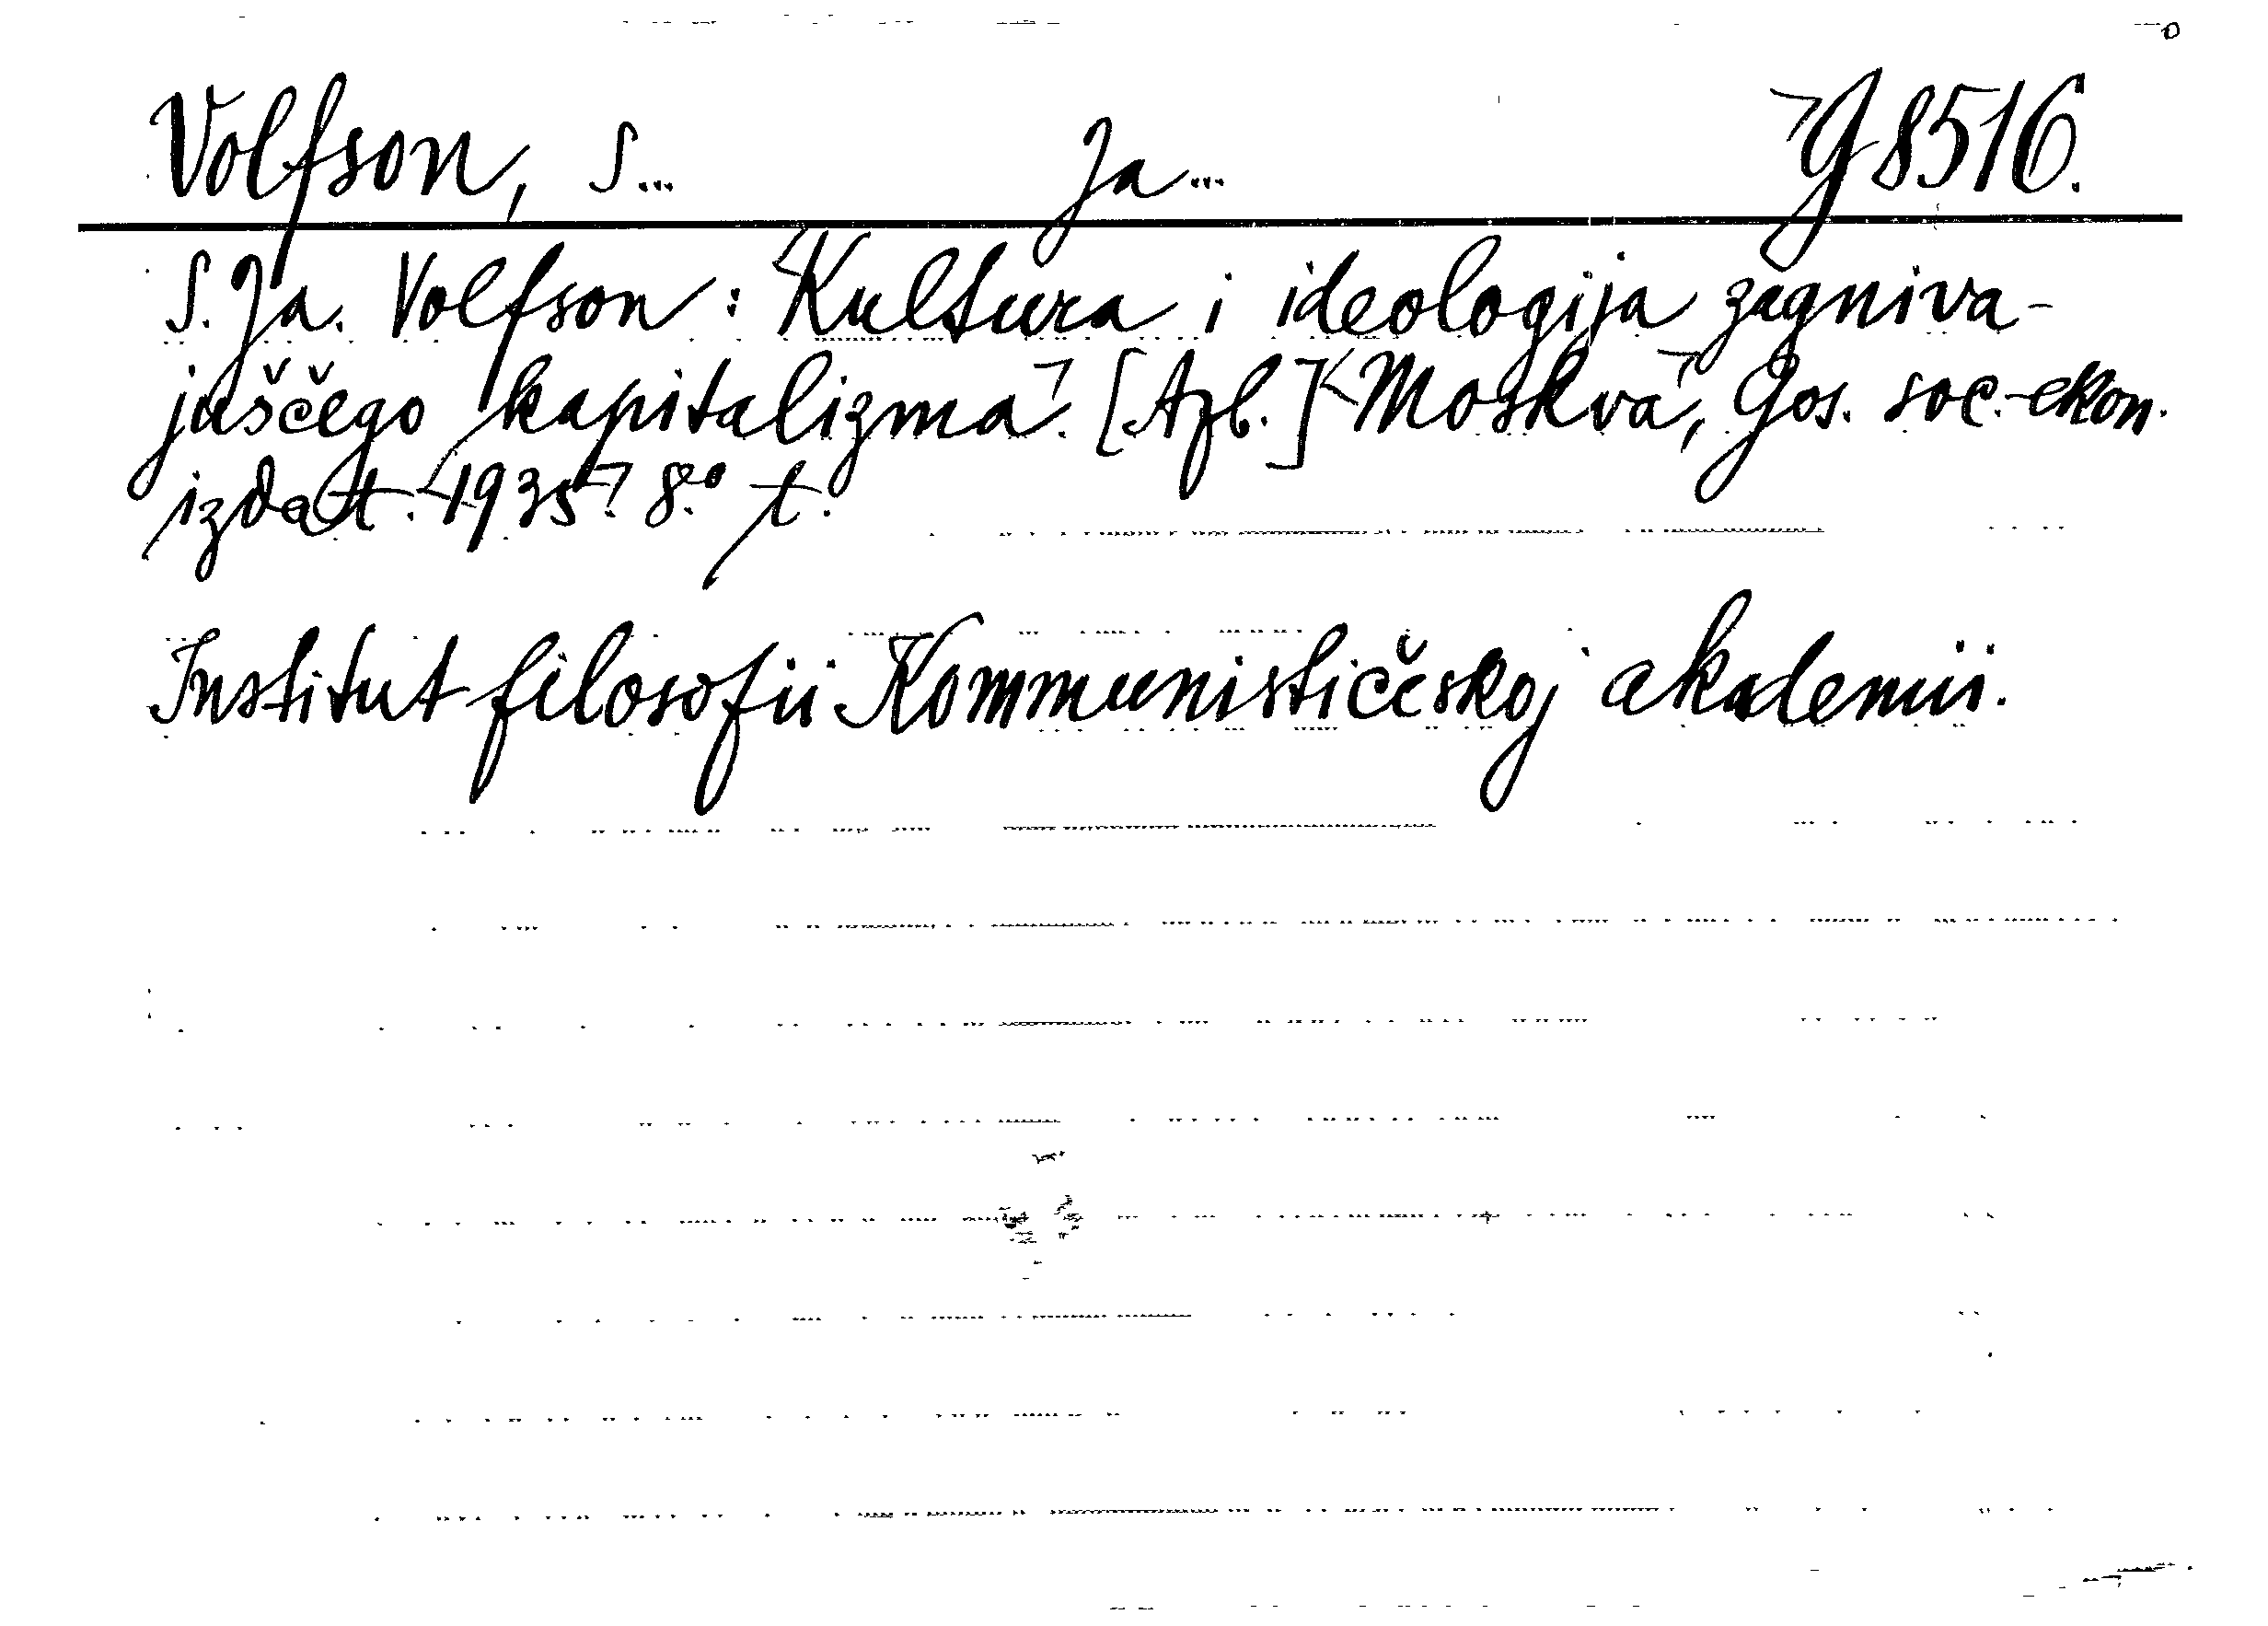 Volfson, S... Ja... G 8516.
S. Ja. Volfson: Kultura i ideologija zagniva-
juščego kapitalizma. [Azb.] Moskva, Gos. soc.-ekon.
izdat. 1935. 8.° t.
Institut filosofii Kommunističeskoj akademii.